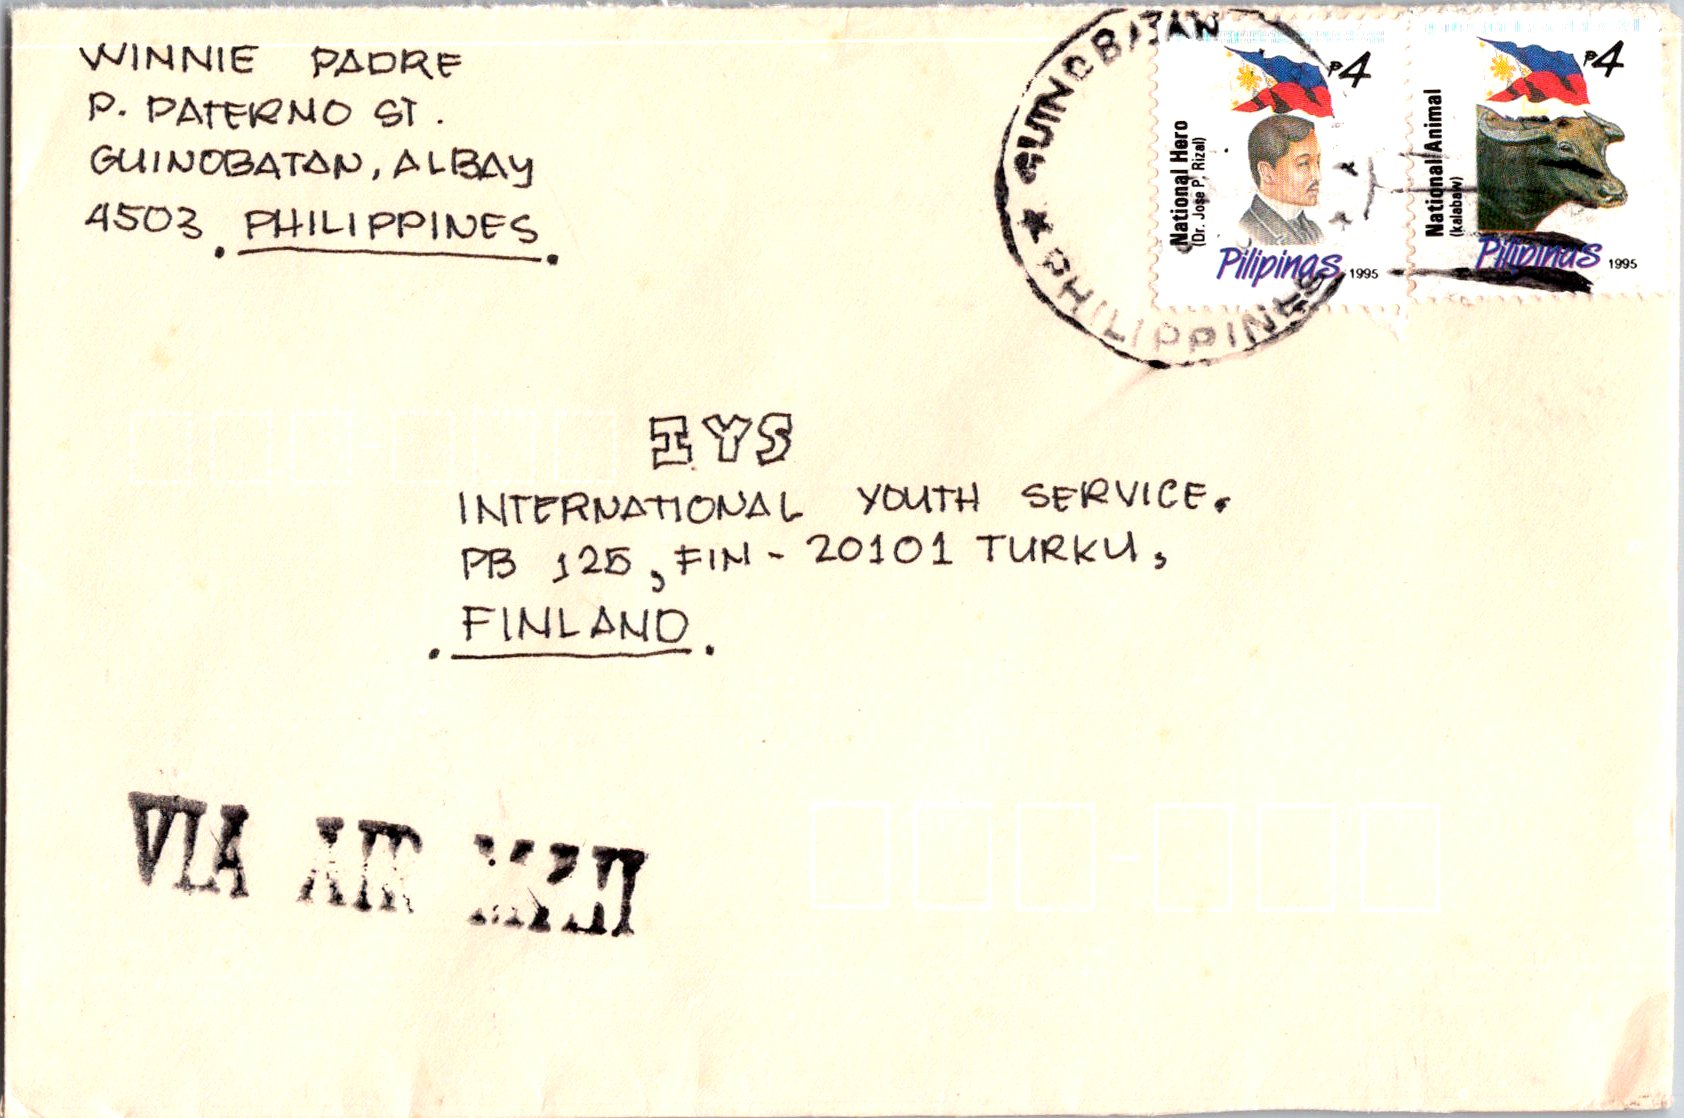 WINNIE PADRE
P. PATERNO ST.
GUINOBATAN, ALBAY
4503 . PHILIPPINES .
GUINOBATAN
PHILIPPINES
₱4
National Hero
(Dr. Jose P. Rizal)
Pilipinas 1995
₱4
National Animal
(kalabaw)
Pilipinas 1995
IYS
INTERNATIONAL YOUTH SERVICE.
PB 125, FIN - 20101 TURKU,
. FINLAND .
VIA AIR MAIL